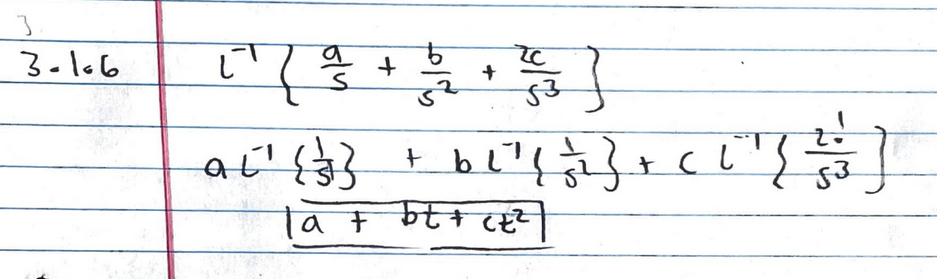 3.
3.1.6 L⁻¹ { a/s + b/s² + 2c/s³ }
a L⁻¹ {1/s¹} + b L⁻¹ {1/s²} + c L⁻¹ { 2!/s³ }
a + bt + ct²